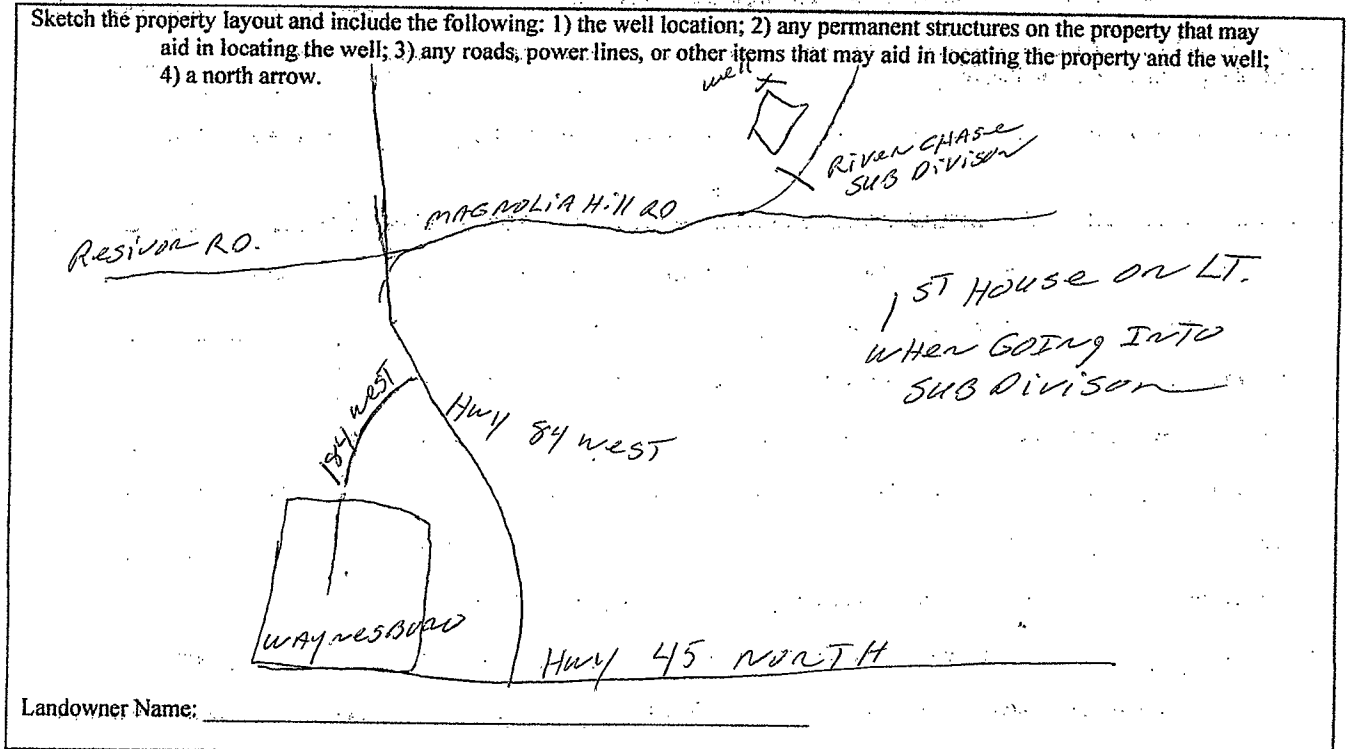 Sketch the property layout and include the following: 1) the well location; 2) any permanent structures on the property that may
aid in locating the well; 3) any roads, power lines, or other items that may aid in locating the property and the well;
4) a north arrow.
well
RiveR CHASe
SUB DiVisoN
MAGNOLiA Hill RD
ResivoR RD.
1ST House on LT.
when GOING INTO
SUB Divison
184 west
Hwy 84 west
WAYNESBORO
Hwy 45 NORTH
Landowner Name: